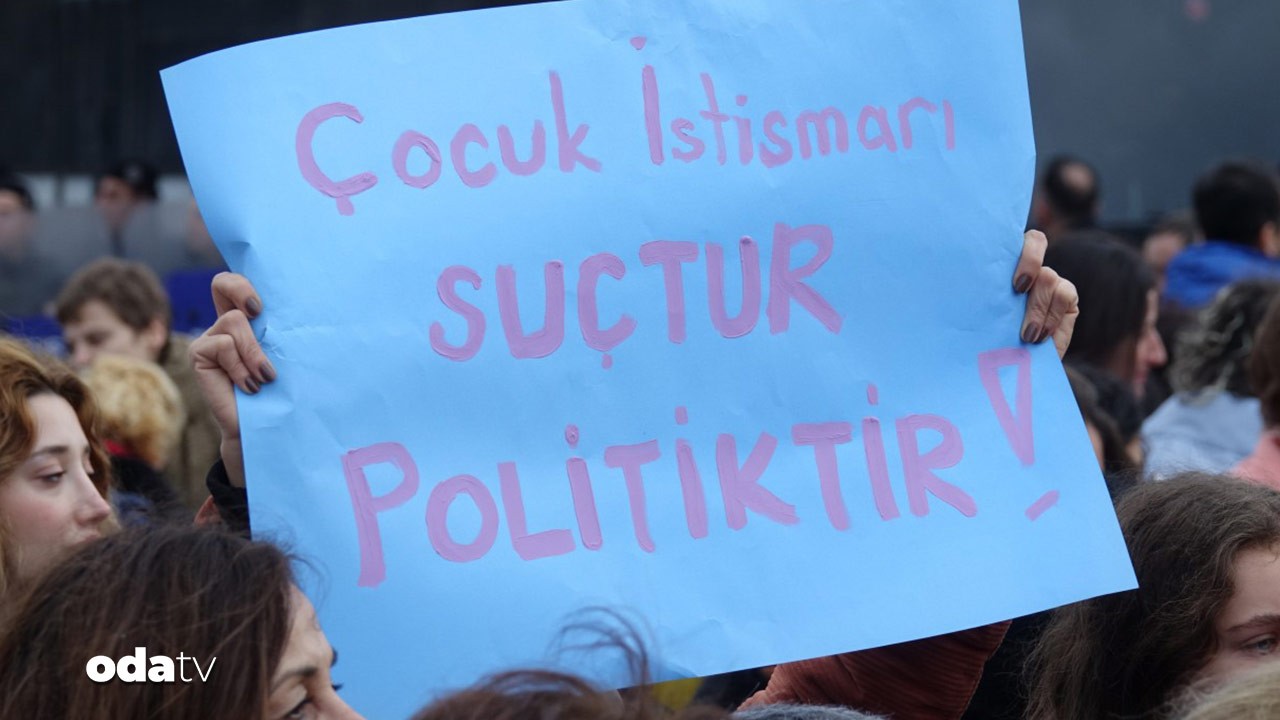 Çocuk İstismarı
SUÇTUR
POLİTİKTİR!
odatv